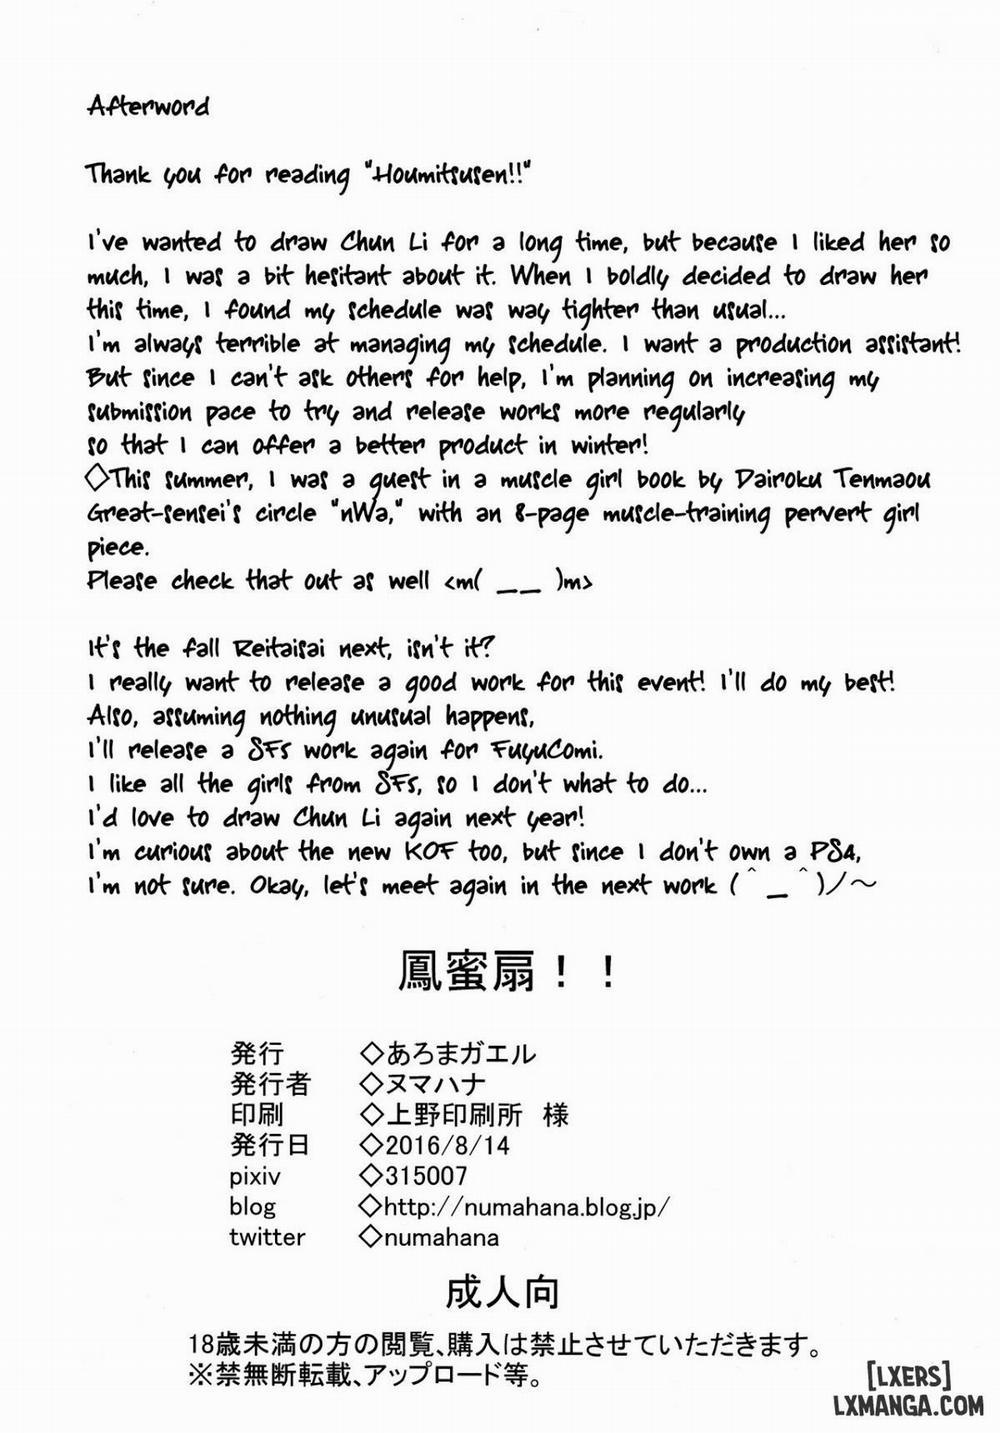 Afterword
Thank you for reading "Houmitsusen!!"
I've wanted to draw Chun Li for a long time, but because I liked her so
much, I was a bit hesitant about it. When I boldly decided to draw her
this time, I found my schedule was way tighter than usual...
I'm always terrible at managing my schedule. I want a production assistant!
But since I can't ask others for help, I'm planning on increasing my
submission pace to try and release works more regularly
so that I can offer a better product in winter!
◇This summer, I was a guest in a muscle girl book by Dairoku Tenmaou
Great-sensei's circle "nWa," with an 8-page muscle-training pervert girl
piece.
Please check that out as well <m( __ )m>
It's the fall Reitaisai next, isn't it?
I really want to release a good work for this event! I'll do my best!
Also, assuming nothing unusual happens,
I'll release a SF5 work again for FuyuComi.
I like all the girls from SF5, so I don't what to do...
I'd love to draw Chun Li again next year!
I'm curious about the new KOF too, but since I don't own a PS4,
I'm not sure. Okay, let's meet again in the next work (＾_＾)ノ～
鳳蜜扇！！
発行 ◇あろまガエル
発行者 ◇ヌマハナ
印刷 ◇上野印刷所 様
発行日 ◇2016/8/14
pixiv ◇315007
blog ◇http://numahana.blog.jp/
twitter ◇numahana
成人向
18歳未満の方の閲覧、購入は禁止させていただきます。
※禁無断転載、アップロード等。
[LXERS]
LXMANGA.COM